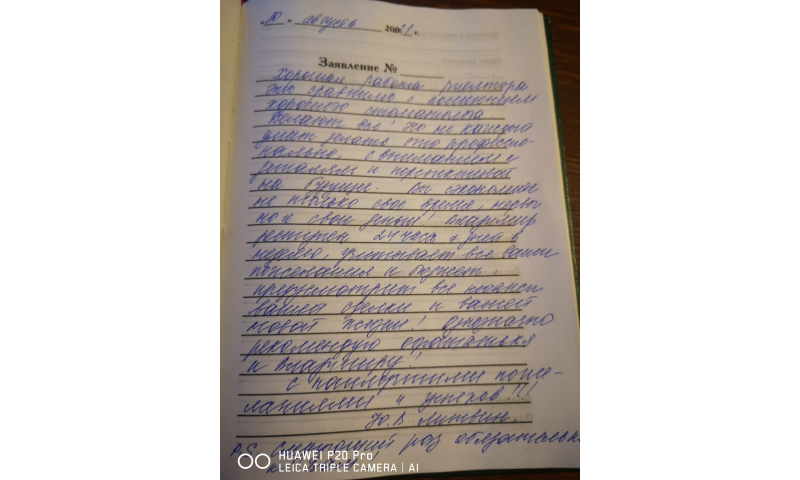 „10" августа 2021 г.
Заявление №
Хорошая работа риэлтора
это сравнимо с посещением
хорошего стоматолога
Делают все! Но не каждый
умеет делать это профессио-
нально, с вниманием к
деталям и перспективой
на будущее. Вы сэкономите
не только свое время, нервы
но и свои деньги! Владимир
доступен 24 часа 7 дней в
неделю, учитывает все ваши
пожелания и бюджет,
предусмотрит все нюансы
вашей сделки и вашей
новой жизни! Однозначно
рекомендую обращаться
к Владимиру!
С наилучшими поже-
ланиями и успехов!!!
Ю.В. Литвин
P.S. Следующий раз обязательно
к Вам!
HUAWEI P20 Pro
LEICA TRIPLE CAMERA | AI